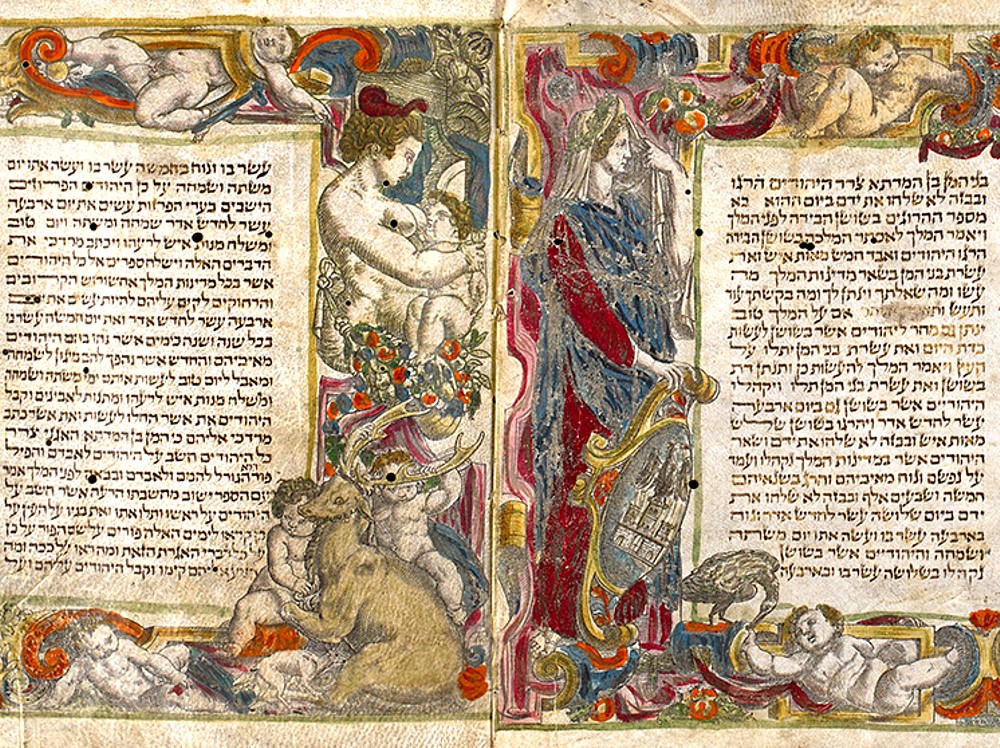 בני המן בן המדתא צרר היהודים הרגו
ובבזה לא שלחו את ידם ביום ההוא בא
מספר ההרוגים בשושן הבירה לפני המלך
ויאמר המלך לאסתר המלכה בשושן הבירה
הרגו היהודים ואבד חמש מאות איש ואת
עשרת בני המן בשאר מדינות המלך מה
עשו ומה שאלתך וינתן לך ומה בקשתך עוד
ותעש ותאמר אסתר אם על המלך טוב
ינתן גם מחר ליהודים אשר בשושן לעשות
כדת היום ואת עשרת בני המן יתלו על
העץ ויאמר המלך להעשות כן ותנתן דת
בשושן ואת עשרת בני המן תלו ויקהלו
היהודיים אשר בשושן גם ביום ארבעה
עשר לחדש אדר ויהרגו בשושן שלש
מאות איש ובבזה לא שלחו את ידם ושאר
היהודים אשר במדינות המלך נקהלו ועמד
על נפשם ונוח מאיביהם והרג בשנאיהם
חמשה ושבעים אלף ובבזה לא שלחו את
ידם ביום שלושה עשר לחדש אדר ונוח
בארבעה עשר בו ועשה אתו יום משתה
ושמחה והיהודיים אשר בשושן
נקהלו בשלושה עשר בו ובארבעה
עשר בו ונוח בחמשה עשר בו ועשה אתו יום
משתה ושמחה על כן היהודים הפרוזים
הישבים בערי הפרזות עשים את יום ארבעה
עשר לחדש אדר שמחה ומשתה ויום טוב
ומשלח מנות איש לרעהו ויכתב מרדכי את
הדברים האלה וישלח ספרים אל כל היהודים
אשר בכל מדינות המלך אחשורוש הקרובים
והרחוקים לקים עליהם להיות עשים את יום
ארבעה עשר לחדש אדר ואת יום חמשה עשר בו
בכל שנה ושנה כימים אשר נחו בהם היהודים
מאיביהם והחדש אשר נהפך להם מיגון לשמחה
ומאבל ליום טוב לעשות אותם ימי משתה ושמחה
ומשלח מנות איש לרעהו ומתנות לאבינים וקבל
היהודים את אשר החלו לעשות ואת אשר כתב
מרדכי אליהם כי המן בן המדתא האגגי צרר
כל היהודים חשב על היהודים לאבדם והפיל
פור הוא הגורל להמם ולאבדם ובבאה לפני המלך אמר
עם הספר ישוב מחשבתו הרעה אשר חשב על
היהודים על ראשו ותלו אתו ואת בניו על העץ על
כן קראו לימים האלה פורים על שם הפור על כן
על כל דברי האגרת הזאת ומה ראו על ככה ומה
הגיע אליהם קימו וקבל היהודים עליהם ועל